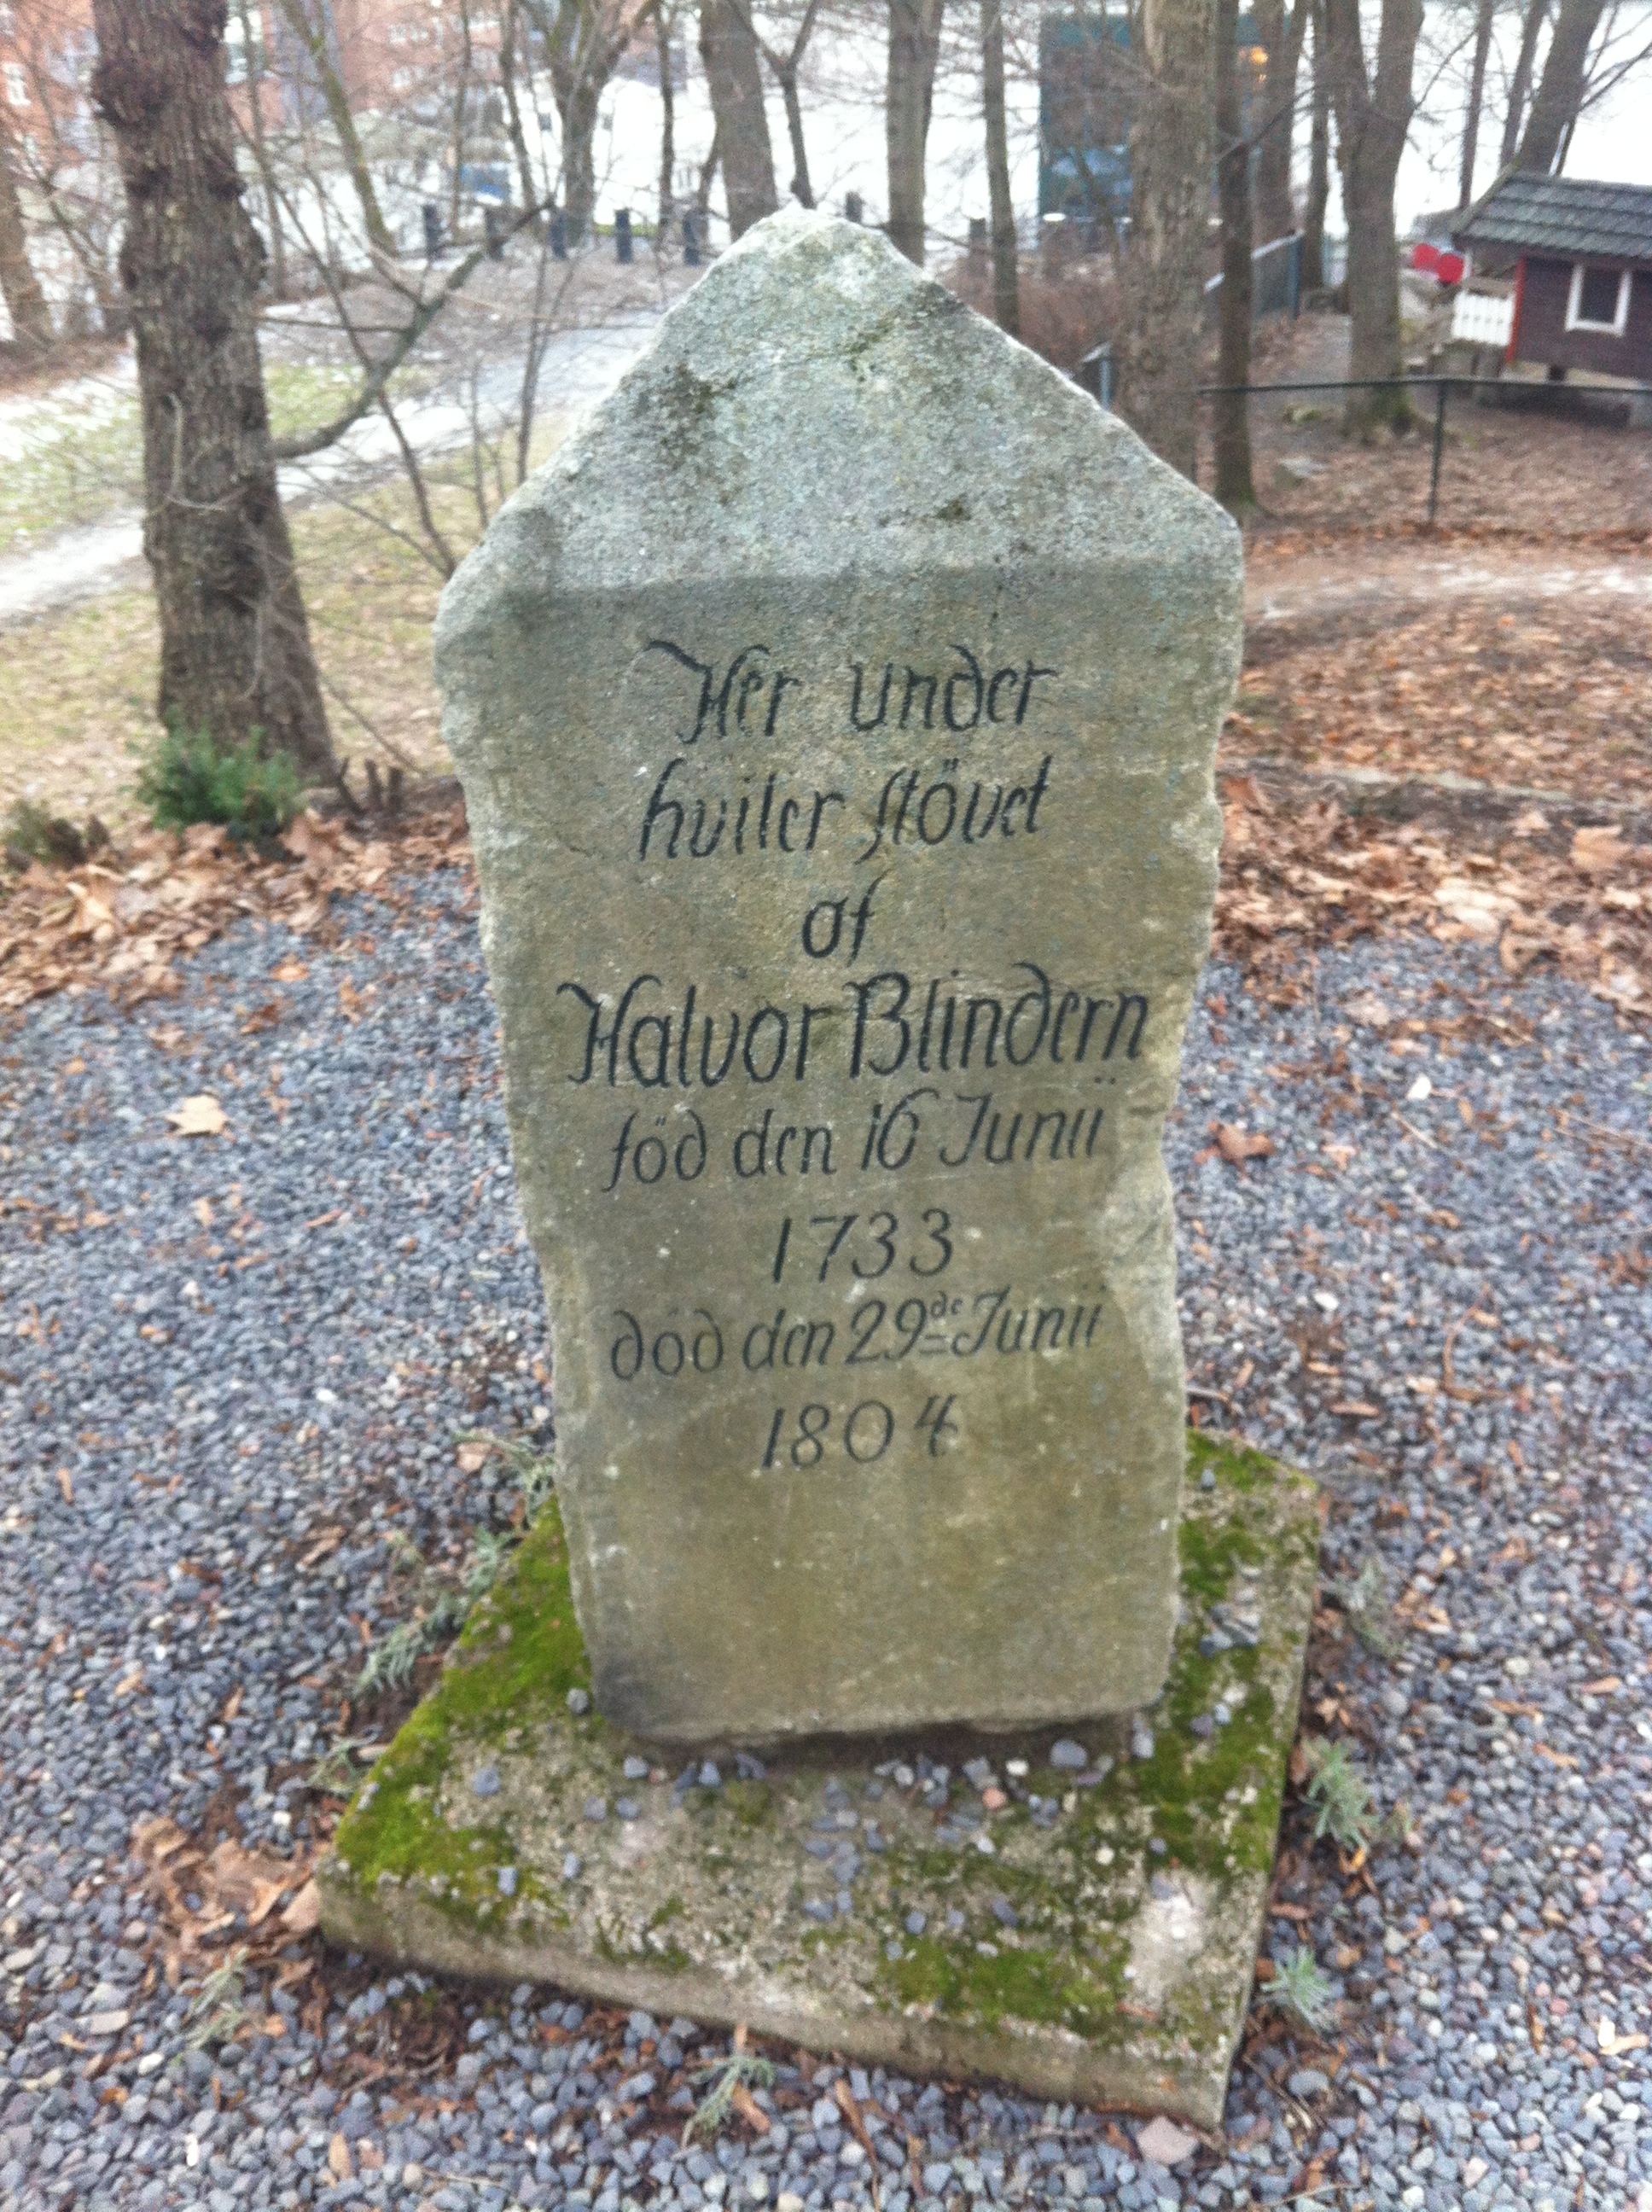 Her under
huiler stövet
af
Halvor Blindern
föd den 16 Junii
1733
död den 29de Junii
1804